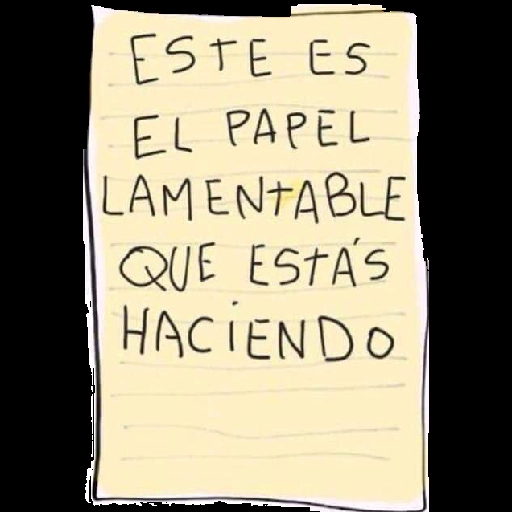 ESTE ES
EL PAPEL
LAMENTABLE
QUE ESTÁS
HACIENDO